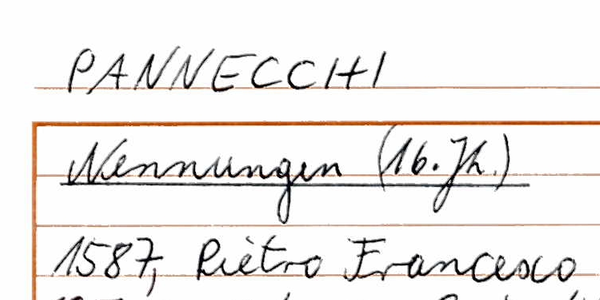 PANNECCHI
Nennungen (16. Jh.)
1587, Pietro Francesco